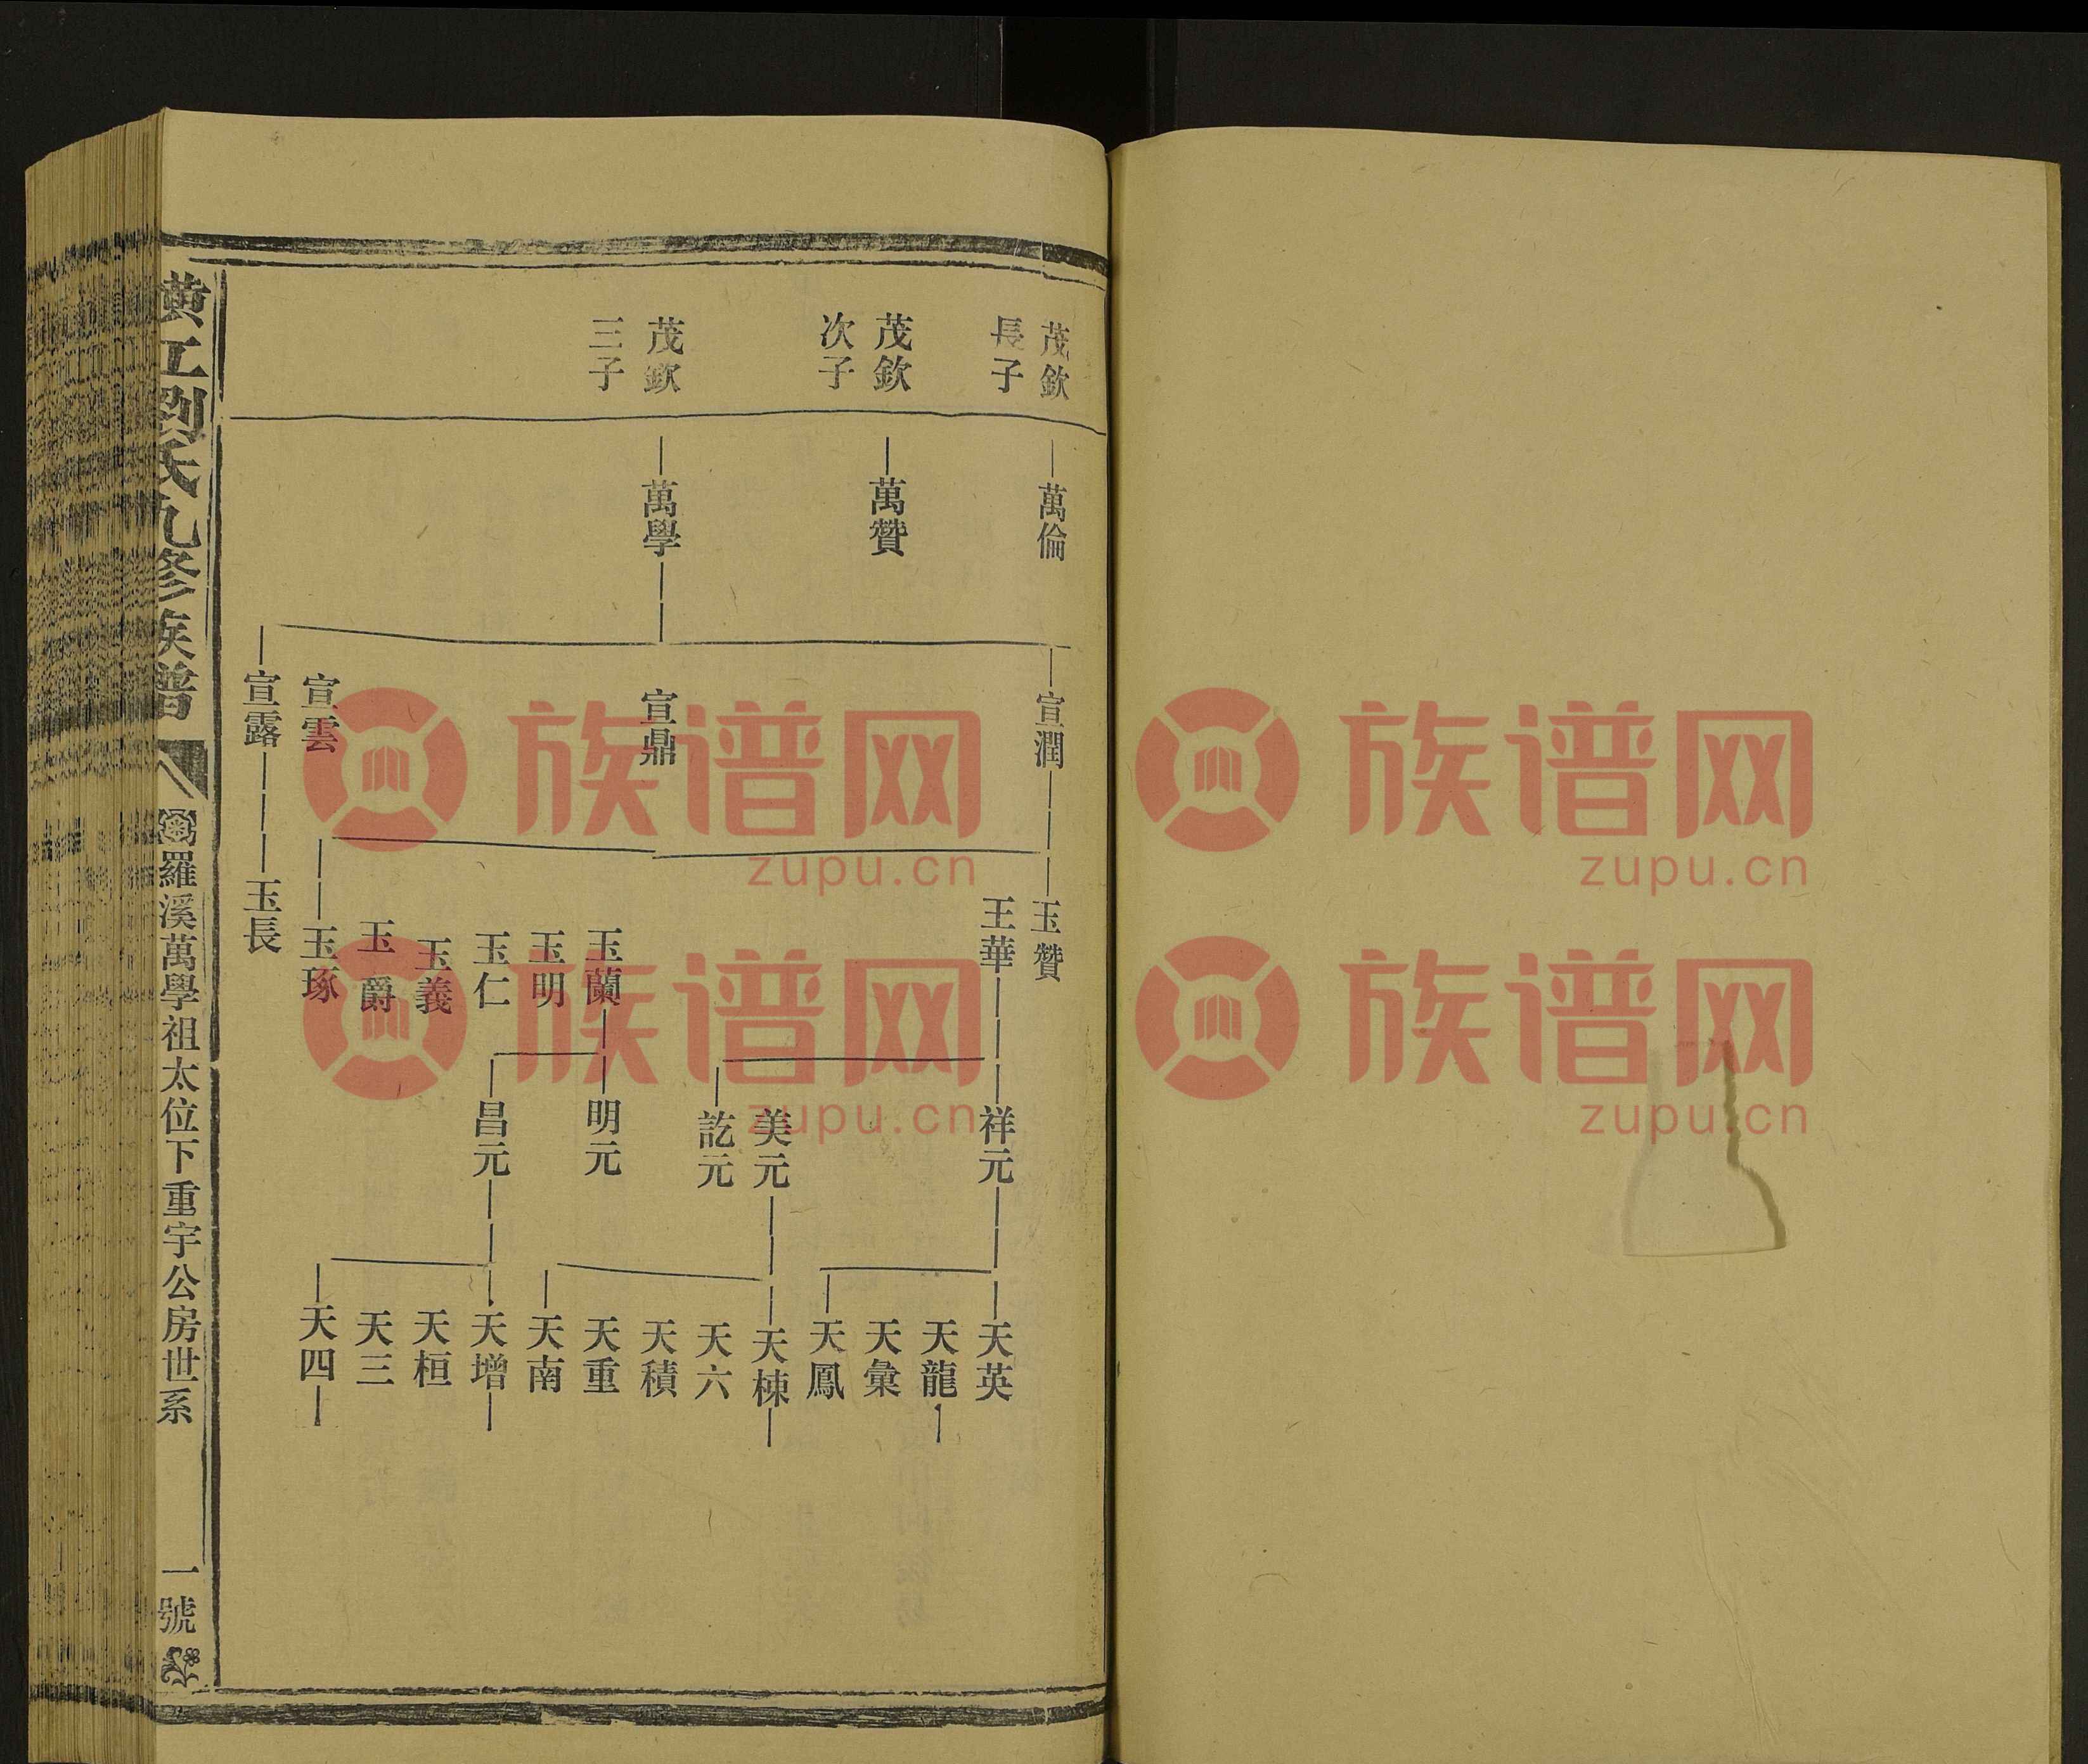 茂欽
長子
茂欽
次子
茂欽
三子
萬倫
萬贊
萬學
宣潤
宣鼎
宣雲
宣露
玉贊
王華
玉蘭
玉明
玉仁
玉義
玉爵
玉琢
玉長
祥元
美元
訖元
明元
昌元
天英
天龍
天彙
天鳳
天棟
天六
天積
天重
天南
天增
天桓
天三
天四
黄江劉氏九修族譜
羅溪萬學祖太位下重宇公房世系
一號
族谱网
zupu.cn
族谱网
zupu.cn
族谱网
zupu.cn
族谱网
zupu.cn